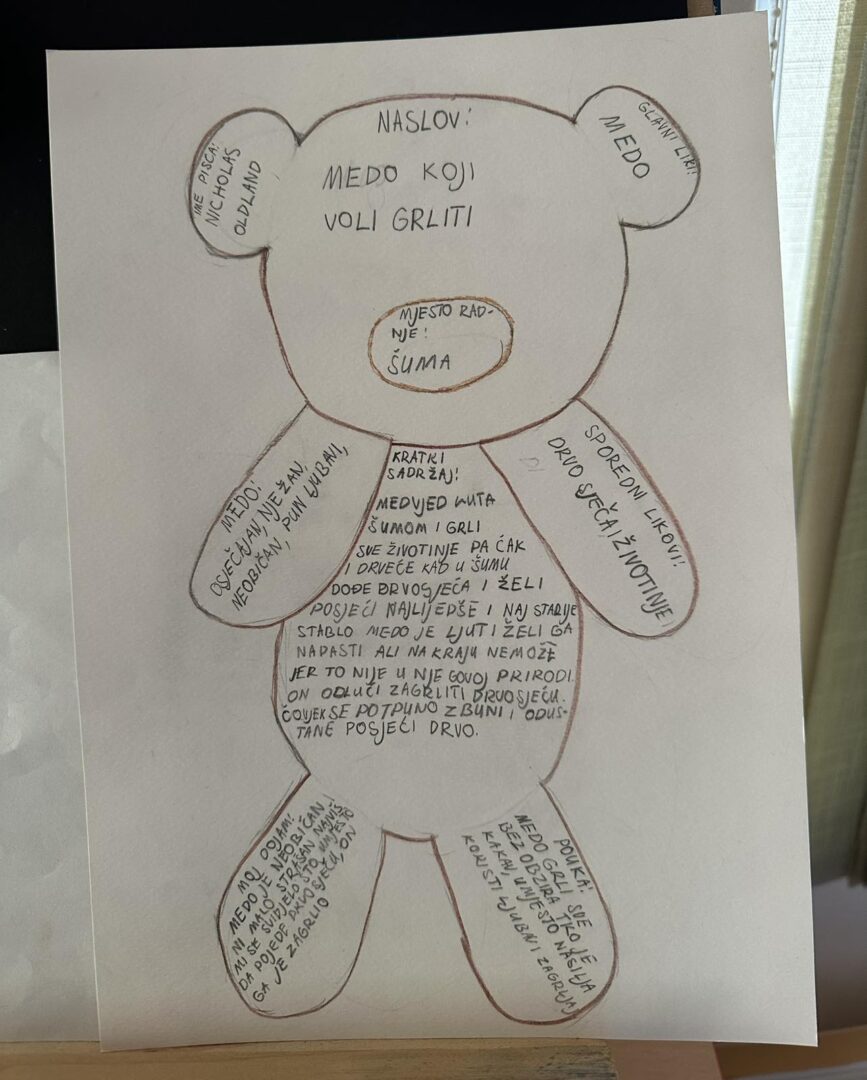 NASLOV:
MEDO KOJI
VOLI GRLITI
IME PISCA:
NICHOLAS
OLDLAND
GLAVNI LIK:
MEDO
MJESTO RAD-
NJE:
ŠUMA
MEDO:
OSJEČAJAN, NJEŽAN,
NEOBIČAN, PUN LJUBAVI,
SPOREDNI LIKOVI:
DRVO SJEČA, ŽIVOTINJE
KRATKI
SADRŽAJ:
MEDVJED LUTA
ŠUMOM I GRLI
SVE ŽIVOTINJE PA ĆAK
I DRVEĆE KAD U ŠUMU
DOĐE DRVOSJEĆA I ŽELI
POSJEĆI NAJLIJEPŠE I NAJ STARIJE
STABLO MEDO JE LJUT I ŽELI GA
NAPASTI ALI NA KRAJU NEMOŽE
JER TO NIJE U NJEGOVOJ PRIRODI.
ON ODLUČI ZAGRLITI DRVOSJEĆU.
ČOVJEK SE POTPUNO ZBUNI I ODUS-
TANE POSJEĆI DRVO.
MOJ DOJAM:
MEDO JE NEOBIČAN I
NI MALO STRAŠAN NAJVIŠ
MI SE SVIDJELO ŠTO UMJESTO
DA POJEDE DRVOSJEĆU, ON
GA JE ZAGRLIO
POUKA:
MEDO GRLI SVE
BEZ OBZIRA TKO JE
KAKAV, UMJESTO NASILJA
KORISTI LJUBAV I ZAGRLJAJ